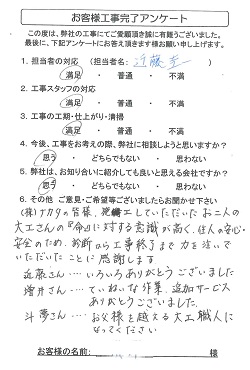 お客様工事完了アンケート
この度は、弊社の工事にてご愛顧頂き誠に有難うございました。
最後に、下記アンケートにお答え頂きます様お願い申し上げます。
1. 担当者の対応 (担当者名: 近藤 )
満足 ・ 普通 ・ 不満
2. 工事スタッフの対応
満足 ・ 普通 ・ 不満
3. 工事の工期・仕上がり・清掃
満足 ・ 普通 ・ 不満
4. 今後、工事をお考えの際、弊社に相談しようと思いますか?
思う ・ どちらでもない ・ 思わない
5. 弊社は、お知り合いに紹介しても良いと思える会社ですか?
思う ・ どちらでもない ・ 思わない
6. その他 ご意見・ご希望等ございましたらお聞かせ下さい
(株)ナカタの皆様、施工していただいたお二人の
大工さんの『命』に対する意識が高く、住人の安心・
安全のため、診断から工事終了まで力を注いで
いただいたことに感謝します。
近藤さん…いろいろありがとうございました
増井さん…ていねいな作業、追加サービス
ありがとうございました。
斗夢さん…お父様を越える大工職人に
なってください
お客様の名前: 様